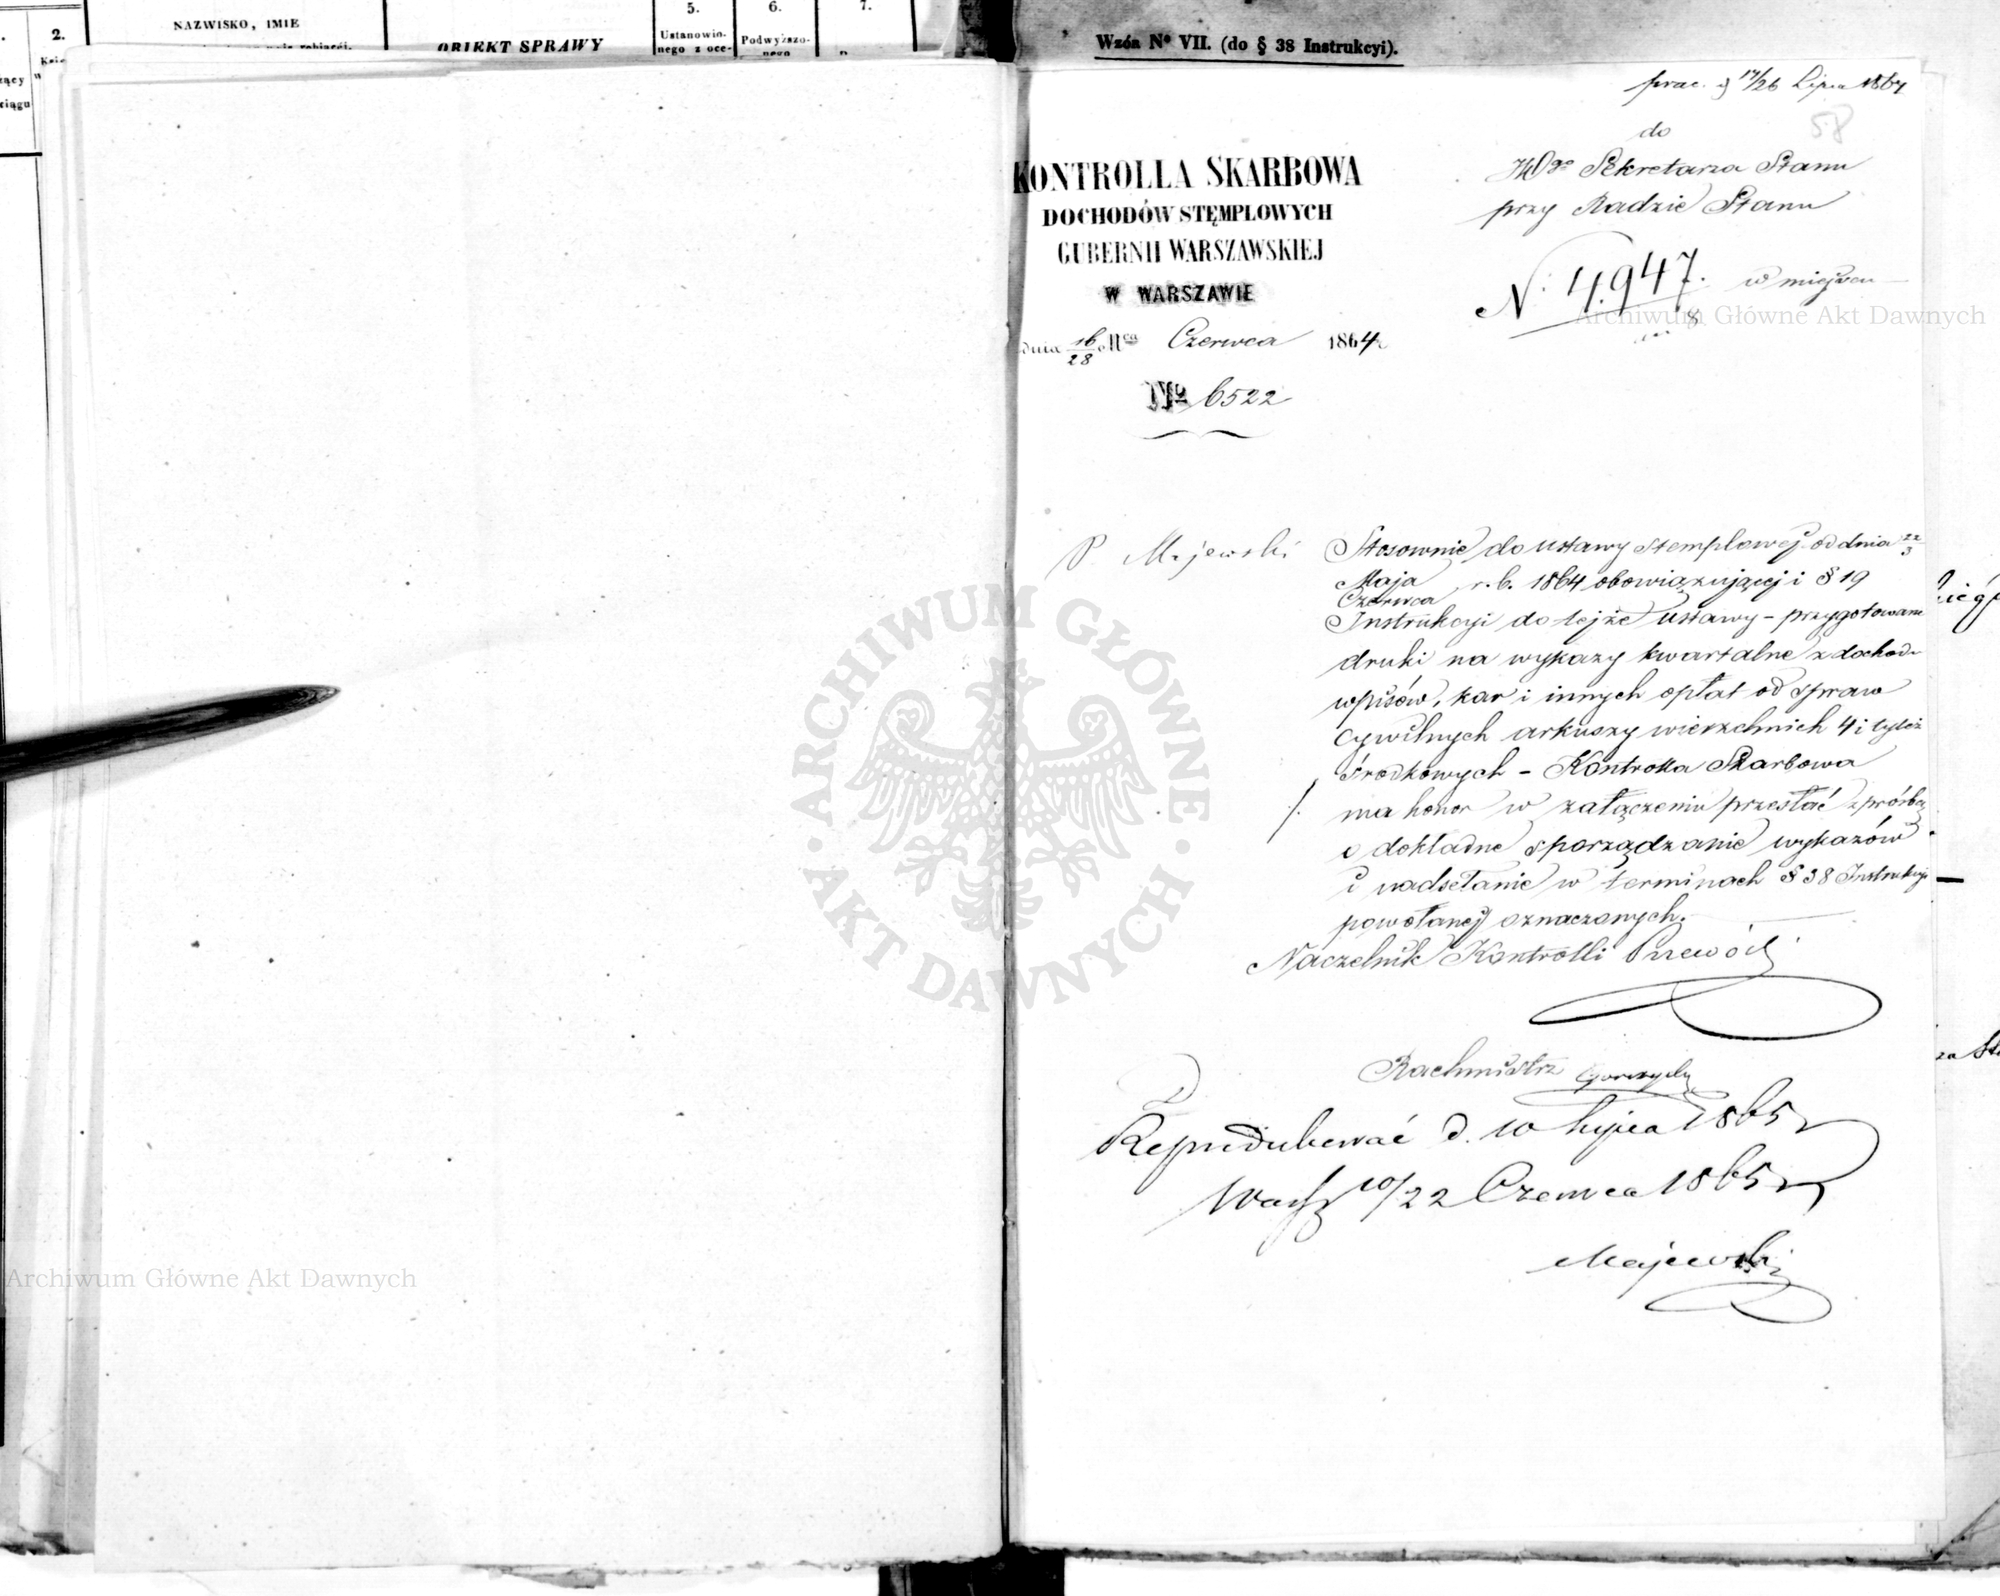 2.
NAZWISKO, IMIE
OBIEKT SPRAWY
5.
Ustanowio-
nego z oce-
6.
Podwyższo-
nego
7.
żący
ciągu
Wzór Nº VII. (do § 38 Instrukcyi).
prac. d 14/26 Lipca 1864
58
do
JWgo Sekretarza Stanu
przy Radzie Stanu
KONTROLLA SKARBOWA
DOCHODÓW STĘMPLOWYCH
GUBERNII WARSZAWSKIEJ
W WARSZAWIE
N: 4947. w miejscu
dnia 16/28 Mca Czerwca 1864
Nº 6522
P. Majewski
Stosownie do ustawy stemplowej od dnia 22/3
Maja/Czerwca r. b. 1864 obowiązującej i § 19
Instrukcyi do tejże ustawy – przygotowane
druki na wykazy kwartalne z dochodu
wpisów, kar i innych opłat od spraw
cywilnych arkuszy wierzchnich 4 i tyleż
środkowych – Kontrolla Skarbowa
/. ma honor w załączeniu przesłać z prośbą
o dokładne sporządzanie wykazów
i nadsełanie w terminach § 38 Instrukcyi
powołanej oznaczonych.
Naczelnik Kontrolli
Rachmistrz
Reprodukować d. 10 Lipca 1865
Warsz 10/22 Czerwca 1865
Majewski
Archiwum Główne Akt Dawnych
Archiwum Główne Akt Dawnych
ARCHIWUM GŁÓWNE · AKT DAWNYCH ·